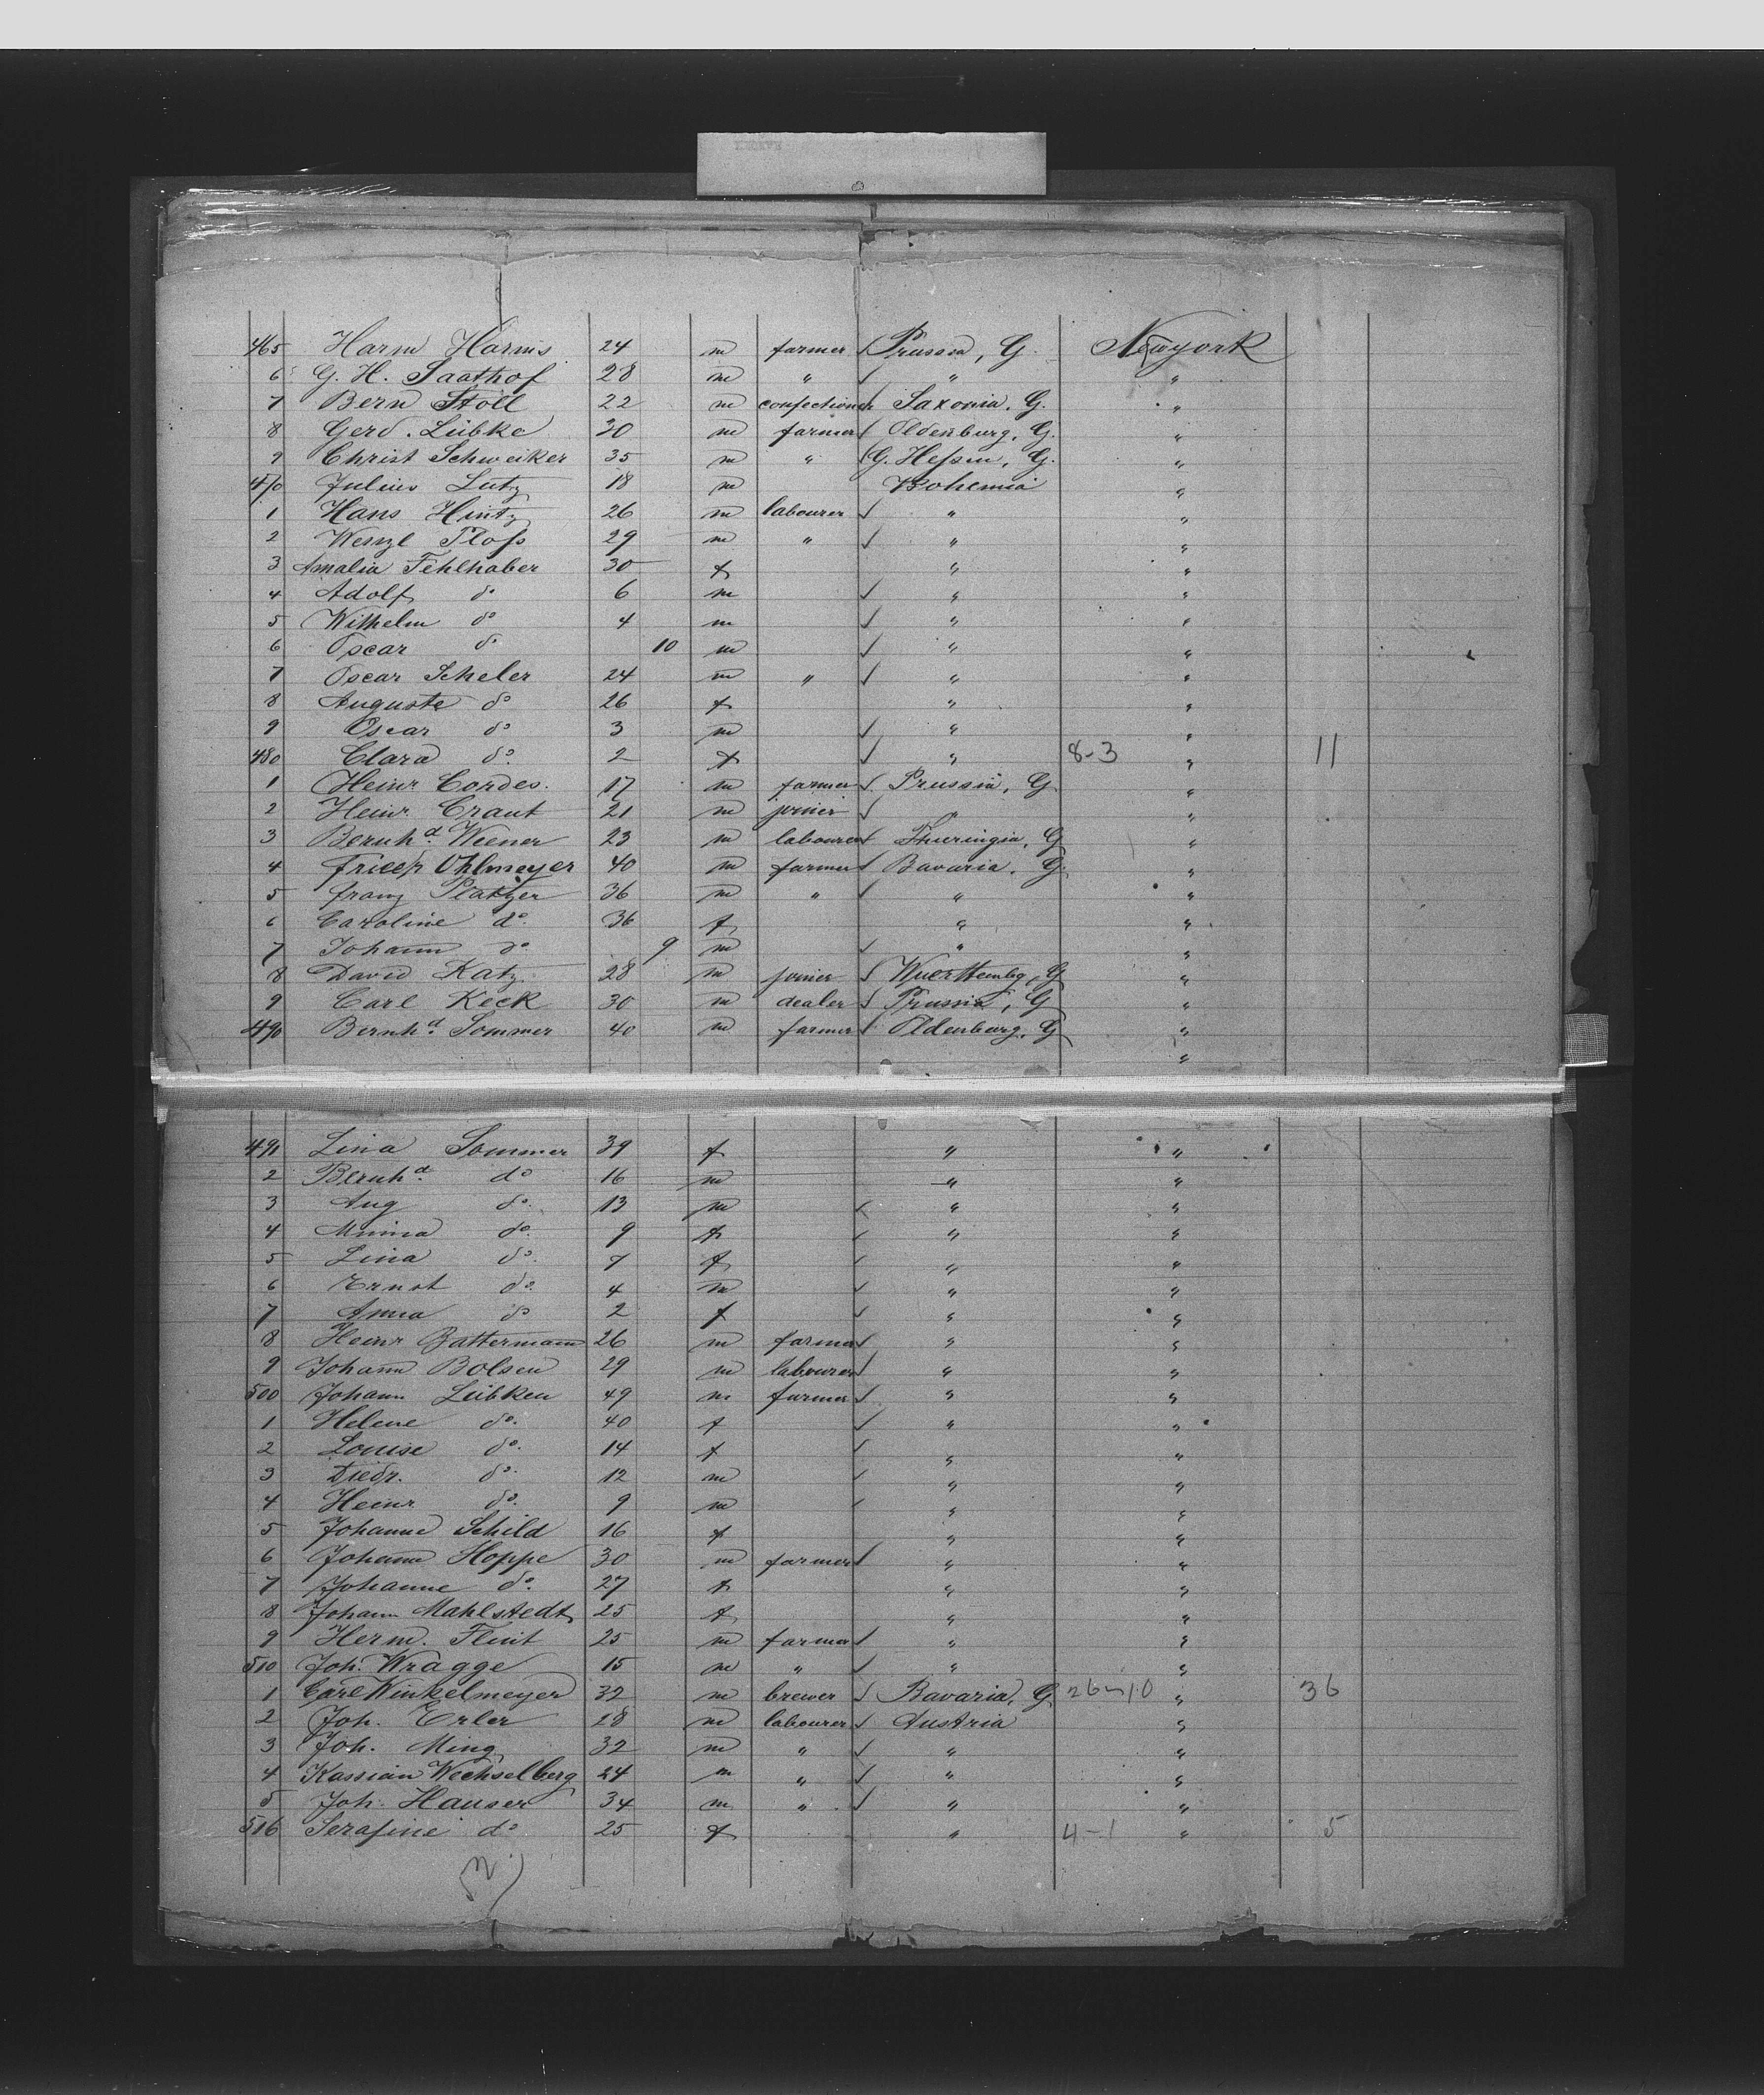 465 Harm Harms 24 m farmer ✓ Prussia, G. Newyork
6 G. H. Saathof 28 m " ✓ " "
7 Bern Stöll 22 m confectioner Saxonia, G. "
8 Gerd. Lübke 30 m farmer ✓ Oldenburg, G. "
9 Christ Schweiker 35 m " ✓ G. Hessen, G. "
470 Julius Lutz 18 m Bohemia "
1 Hans Hintz 26 m labourer ✓ " "
2 Wenzl Ploss 29 m " ✓ " "
3 Amalia Fehlhaber 30 f " "
4 Adolf do 6 m ✓ " "
5 Wilhelm do 4 m ✓ " "
6 Oscar do 10 m ✓ " "
7 Oscar Scheler 24 m " ✓ " "
8 Auguste do 26 f " "
9 Oscar do 3 m ✓ " "
480 Clara do 2 f ✓ " 8-3 " 11
1 Heinr Cordes. 17 m farmer ✓ Prussia, G. "
2 Heinr. Craut 21 m joiner ✓ " "
3 Bernhd. Weener 23 m labourer ✓ Thuringia, G "
4 Ohlmeyer 40 m farmer ✓ Bavaria, G. "
5 Franz Platzer 36 m " ✓ " "
6 Caroline do 36 f " "
7 Johann do 9 m ✓ " "
8 David Katz 28 m joiner ✓ Wuerttembg, G "
9 Carl Keck 30 m dealer ✓ Prussia, G "
490 Bernhd. Sommer 40 m farmer ✓ Oldenburg, G "
"
491 Lina Sommer 39 f " "
2 Bernhd. do 16 m " "
3 Aug do. 13 m ✓ " "
4 Minna do. 9 f ✓ " "
5 Lina do. 7 f ✓ " "
6 Ernst do. 4 m ✓ " "
7 Anna do 2 f ✓ " "
8 Heinr Battermann 26 m farmer ✓ " "
9 Johann Bolsen 29 m labourer ✓ " "
500 Johann Lübken 49 m farmer ✓ " "
1 Helene do. 40 f ✓ " "
2 Louise do. 14 f ✓ " "
3 Diedr. do. 12 m ✓ " "
4 Heinr do. 9 m ✓ " "
5 Johanne Schild 16 f " "
6 Johann Hoppe 30 m farmer ✓ " "
7 Johanne do. 27 f " "
8 Johann Mahlstedt 25 f " "
9 Herm. Flint 25 m farmer ✓ " "
510 Joh. Wragge 15 m " ✓ " "
1 Carl Winkelmeyer 32 m brewer ✓ Bavaria, G. 26-10 " 36
2 Joh. Erler 28 m labourer ✓ Austria "
3 Joh. Ming 32 m " ✓ " "
4 Kassian Wechselberg 24 m " ✓ " "
5 Joh. Hauser 34 m " ✓ " "
516 Serafine do 25 f " 4-1 " 5